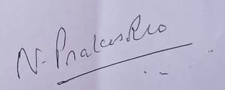 N. Prakash Rao